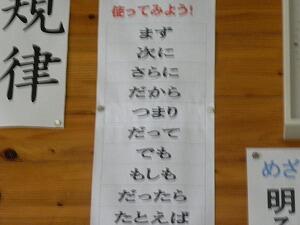 規律
使ってみよう!
まず
次に
さらに
だから
つまり
だって
でも
もしも
だったら
たとえば
めざ
明